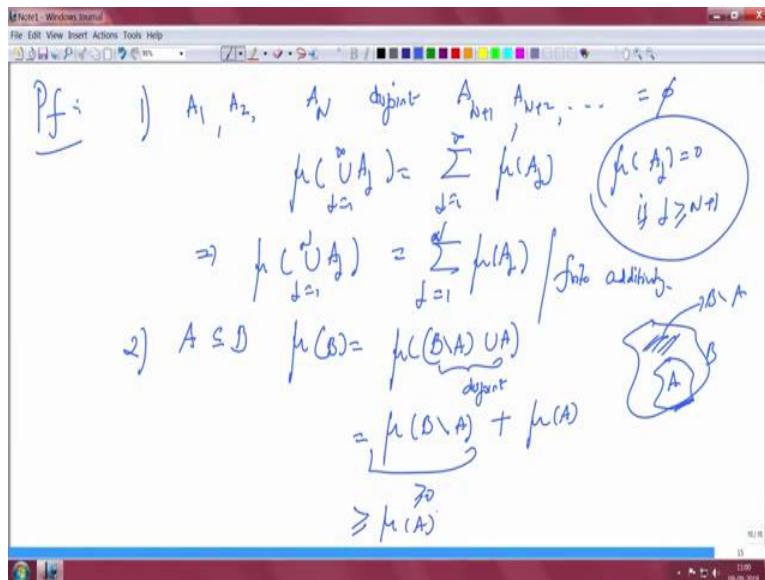 Note1 - Windows Journal
File Edit View Insert Actions Tools Help
Pf : 1) A_1, A_2, A_N disjoint A_{N+1}, A_{N+2}, .... = φ
μ( ∪_{j=1}^{∞} A_j ) = Σ_{j=1}^{∞} μ(A_j)
μ( A_j ) = 0
if j ≥ N+1
⇒ μ( ∪_{j=1}^{N} A_j ) = Σ_{j=1}^{N} μ(A_j) finite additivity.
2) A ⊆ B μ(B) = μ((B\A) ∪ A)
disjoint
B\A
B
A
= μ(B\A) + μ(A)
≥0
≥ μ(A)
15
11:00